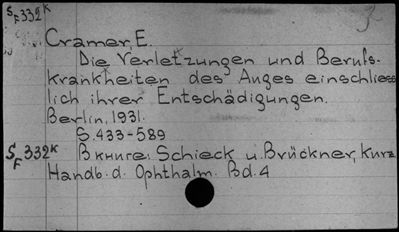 S/F 332 K
Cramer, E.
Die Verletzungen und Berufs-
krankheiten des Auges einschliess
lich ihrer Entschädigungen.
Berlin, 1931.
S. 433-589
S/F 332 K В книге: Schieck u. Brückner, Kurz
Handb. d. Ophthalm. Bd. 4